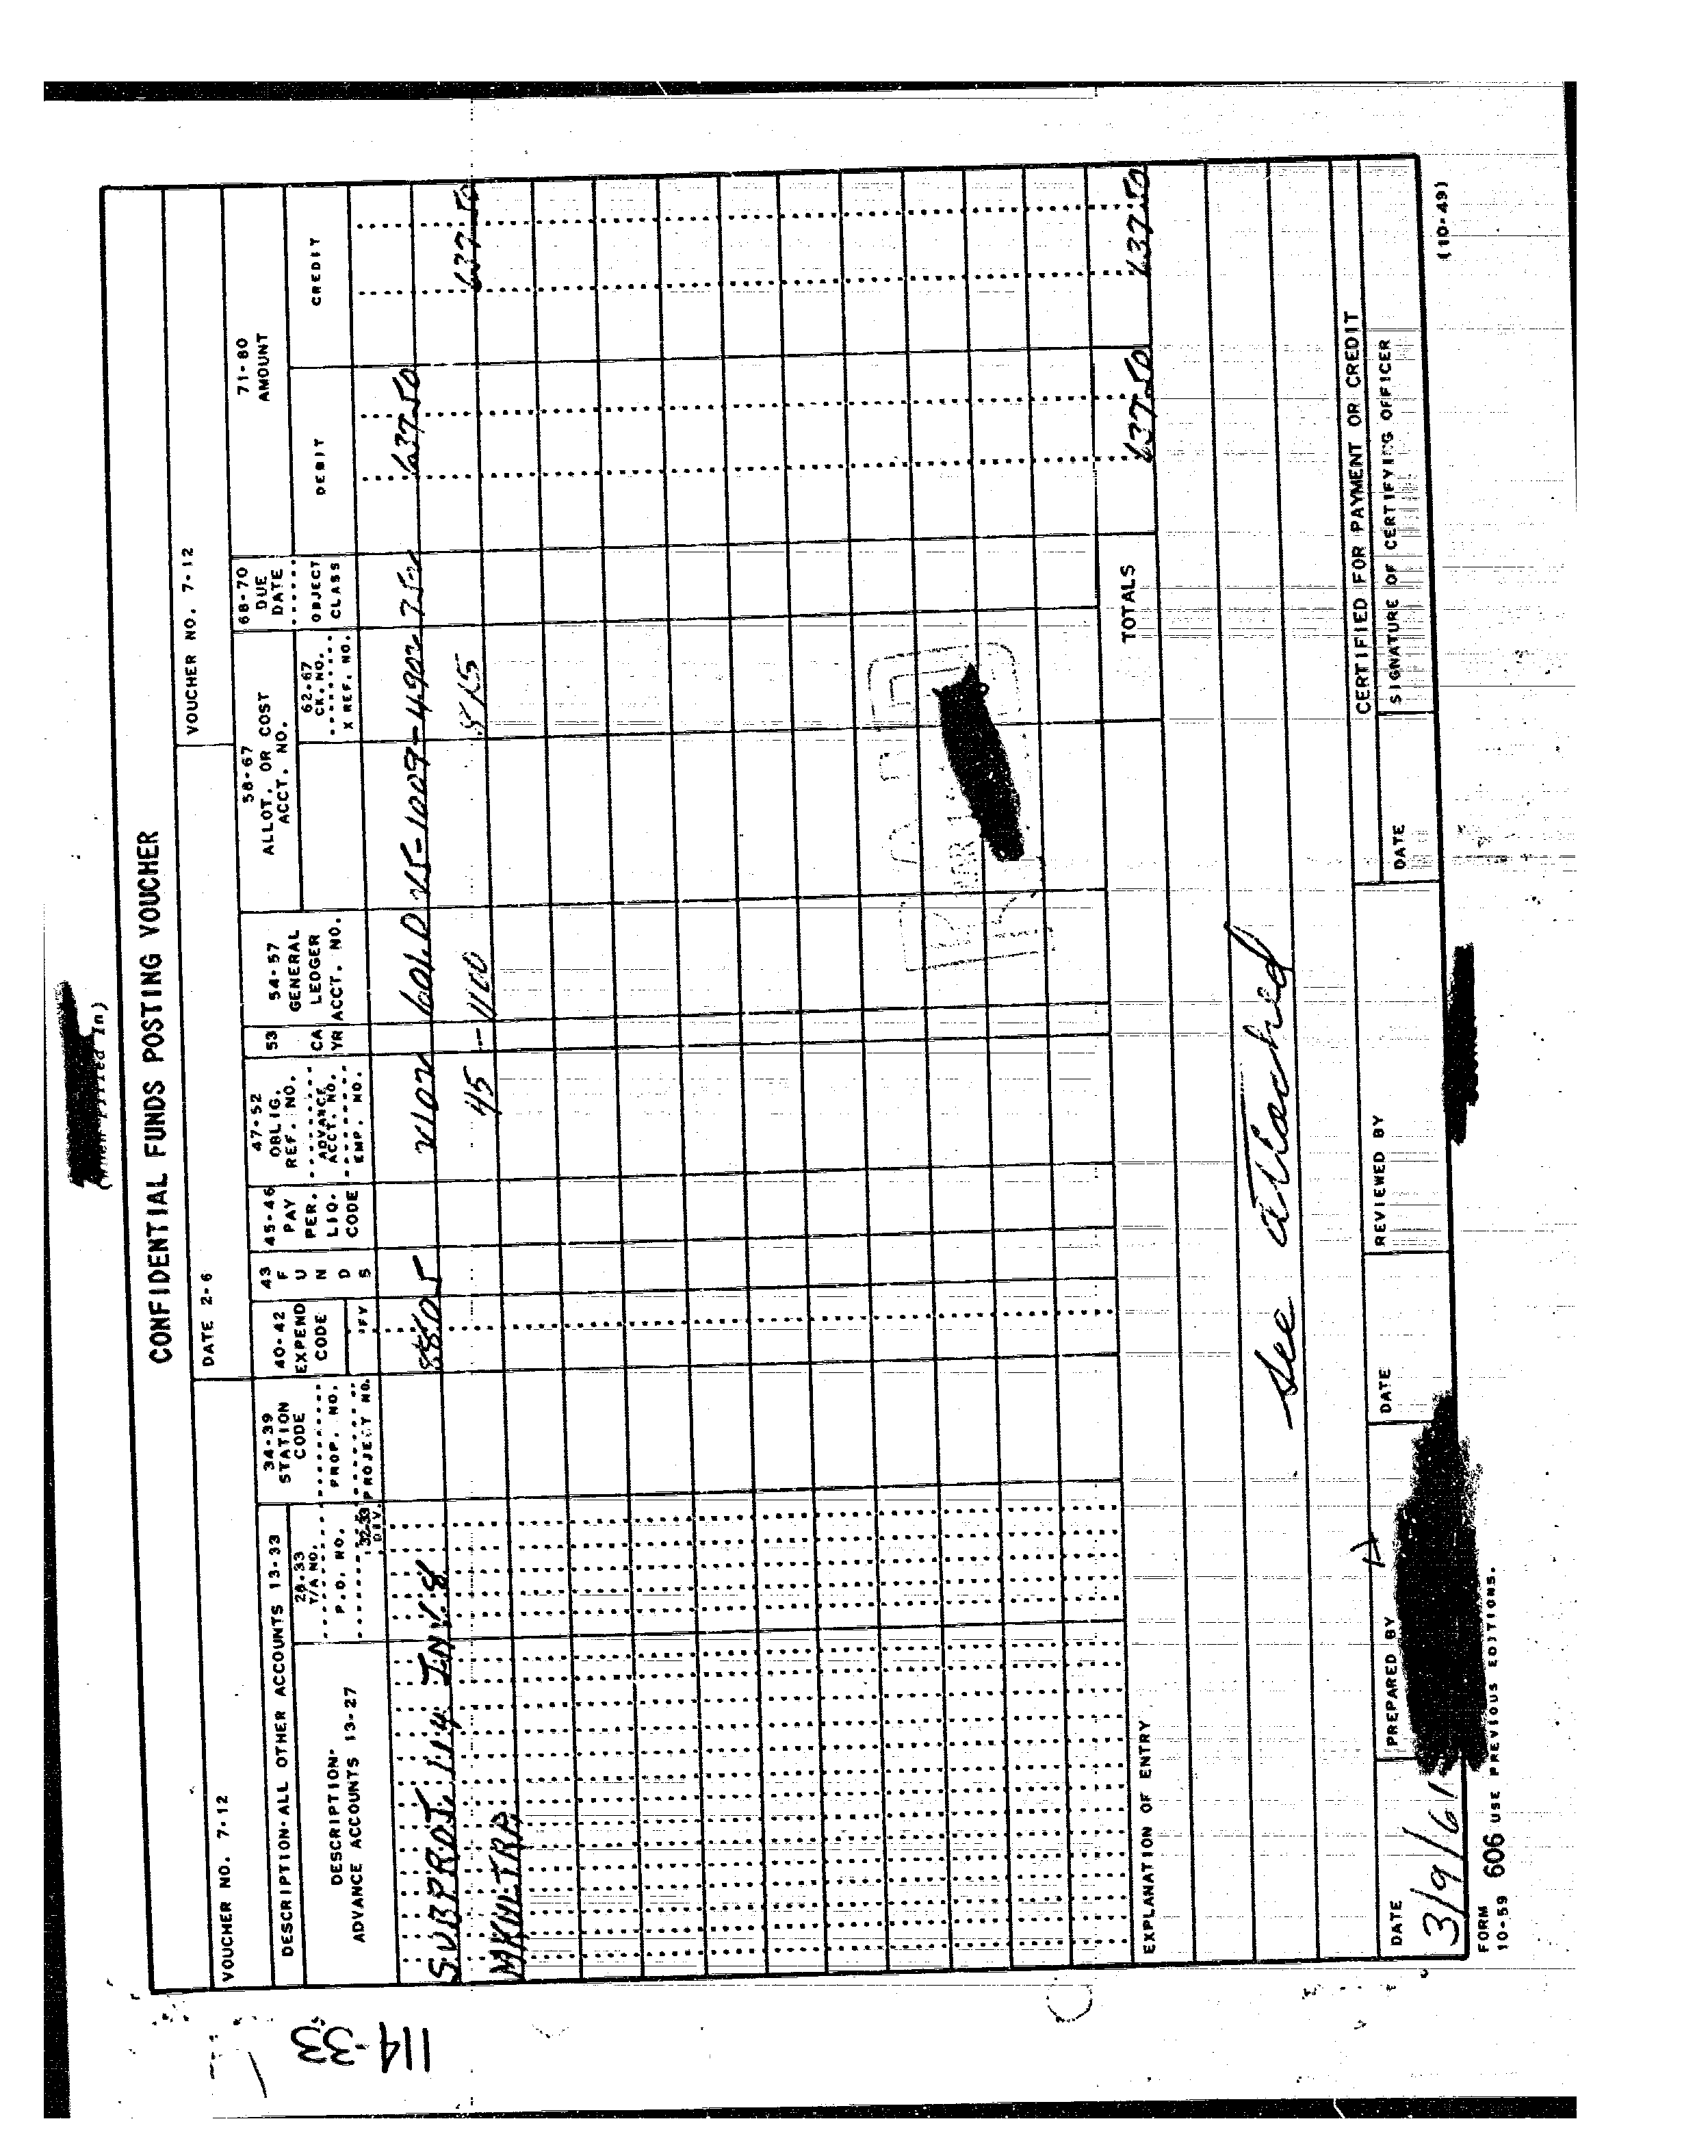 (When Filled In)
CONFIDENTIAL FUNDS POSTING VOUCHER
VOUCHER NO. 7-12
DATE 2-6
VOUCHER NO. 7-12
DESCRIPTION-ALL OTHER ACCOUNTS 13-33
DESCRIPTION-
ADVANCE ACCOUNTS 13-27
28-33
T/A NO.
P.O. NO.
32-33
DIV.
34-39
STATION
CODE
PROP. NO.
PROJECT NO.
40-42
EXPEND
CODE
FY
43
F
U
N
D
S
45-46
PAY
PER.
LIQ.
CODE
47-52
OBLIG.
REF. NO.
ADVANCE
ACCT. NO.
EMP. NO.
53
CA
YR
54-57
GENERAL
LEDGER
ACCT. NO.
58-67
ALLOT. OR COST
ACCT. NO.
62-67
CK. NO.
X REF. NO.
68-70
DUE
DATE
OBJECT
CLASS
71-80
AMOUNT
DEBIT
CREDIT
SUBPROJ. 114 INV. 8 1-1009-4902 637 50
MKULTRA 45 - 1100 637 50
TOTALS 637.50 637.50
EXPLANATION OF ENTRY
See attached
CERTIFIED FOR PAYMENT OR CREDIT
DATE 3/9/61
PREPARED BY
DATE
REVIEWED BY
DATE
SIGNATURE OF CERTIFYING OFFICER
FORM
10-59 606 USE PREVIOUS EDITIONS.
(10-49)
114-33